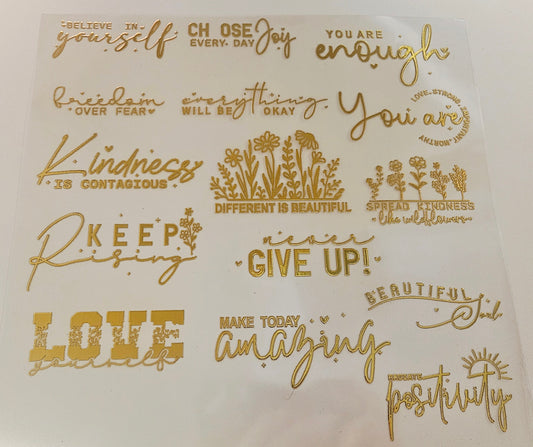 BELIEVE IN
yourself
CH OSE Joy
EVERY DAY
YOU ARE
enough
freedom
OVER FEAR
everything
WILL BE OKAY
You are
LOVE.STRONG.
WORTHY
Kindness
IS CONTAGIOUS
DIFFERENT IS BEAUTIFUL
SPREAD KINDNESS
like wildflowers
KEEP
Rising
never
GIVE UP!
BEAUTIFUL
Soul
LOVE
yourself
MAKE TODAY
amazing
positivity